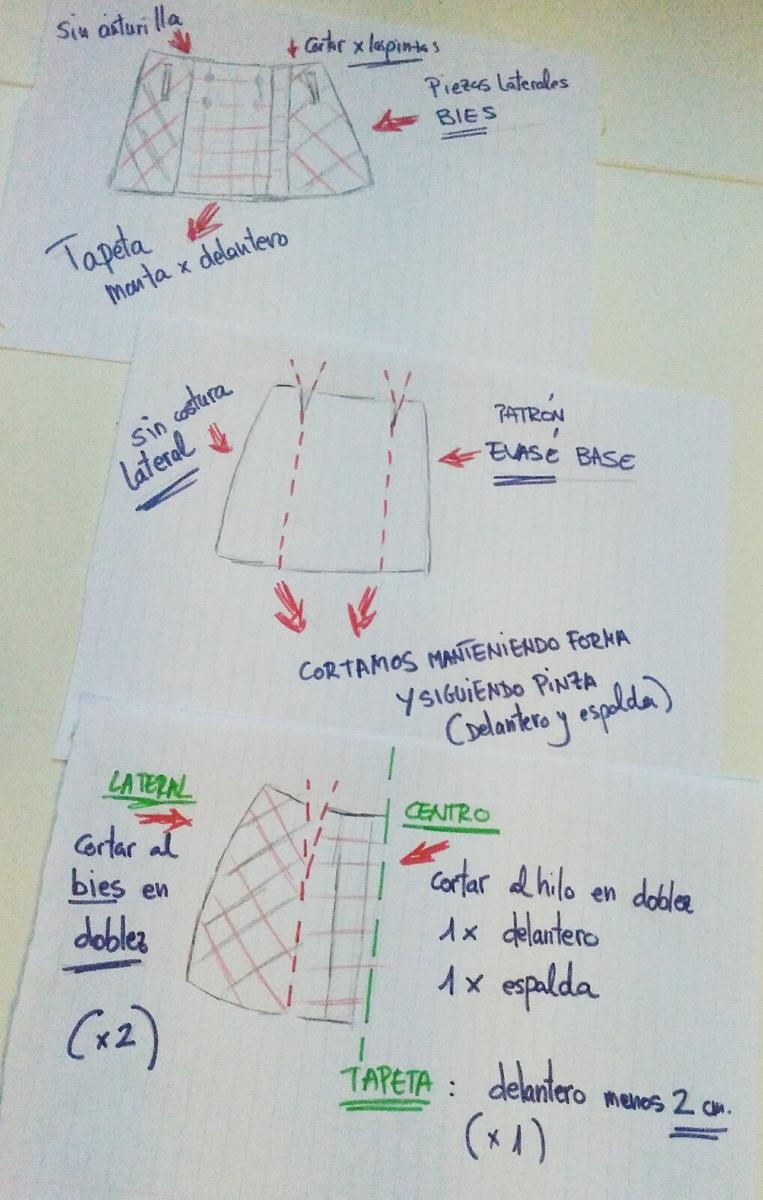 Sin costurilla
Cortar x las pinzas
Piezas laterales
BIES
Tapeta
monta x delantero
sin costura
lateral
PATRÓN
EVASÉ BASE
CORTAMOS MANTENIENDO FORMA
Y SIGUIENDO PINZA
(Delantero y espalda)
LATERAL
Cortar al
bies en
doblez
(x2)
CENTRO
Cortar al hilo en doblez
1x delantero
1x espalda
TAPETA: delantero menos 2 cm.
(x1)